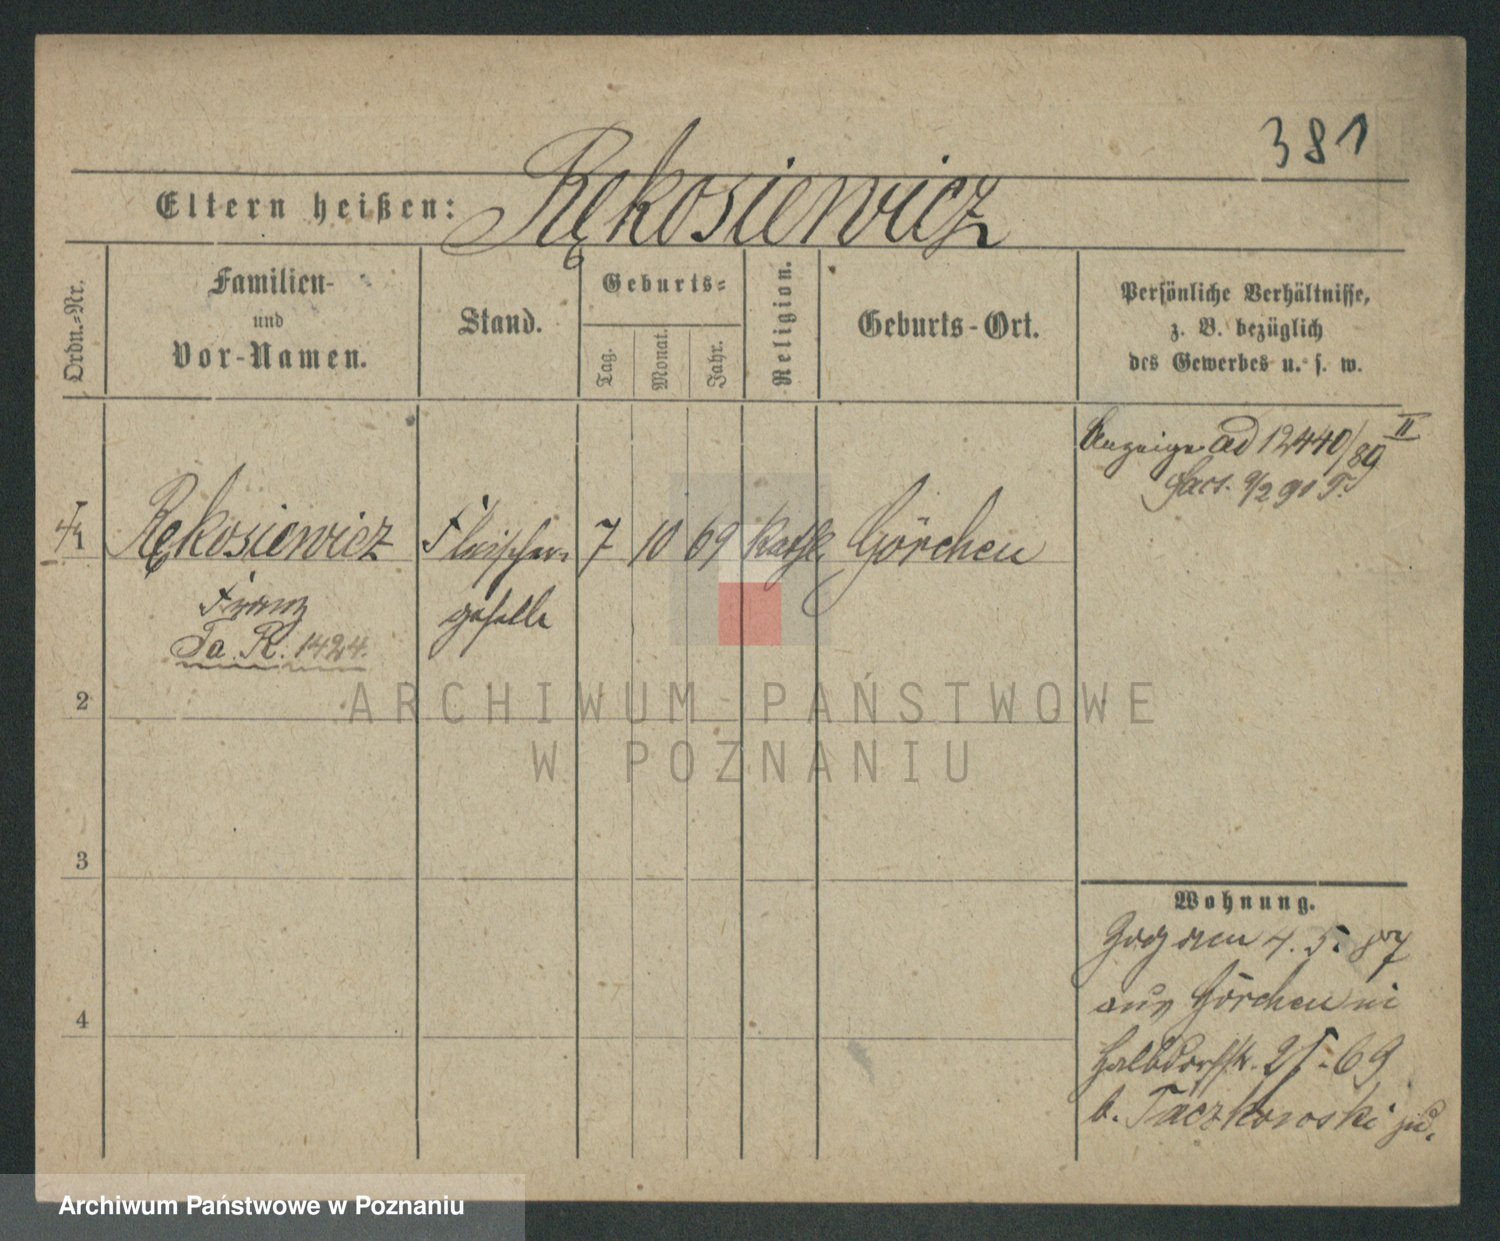 381
Eltern heißen: Rękosiewicz
Ordn.-Nr.
Familien-
und
Vor-Namen.
Stand.
Geburts-
Tag.
Monat.
Jahr.
Religion.
Geburts-Ort.
Persönliche Verhältnisse,
z. B. bezüglich
des Gewerbes u. s. w.
Anzeige ad 12440/89 II
9/2 90
1 Rękosiewicz Fleischer- 7 10 69 kath. Görchen
Franz geselle
Ta. R. 1424.
2
3
4
Wohnung.
Zog am 4. 5. 87
aus Görchen in
Halbdorfstr. 25-69
b. Taczkowski zu.
ARCHIWUM PAŃSTWOWE
W POZNANIU
Archiwum Państwowe w Poznaniu